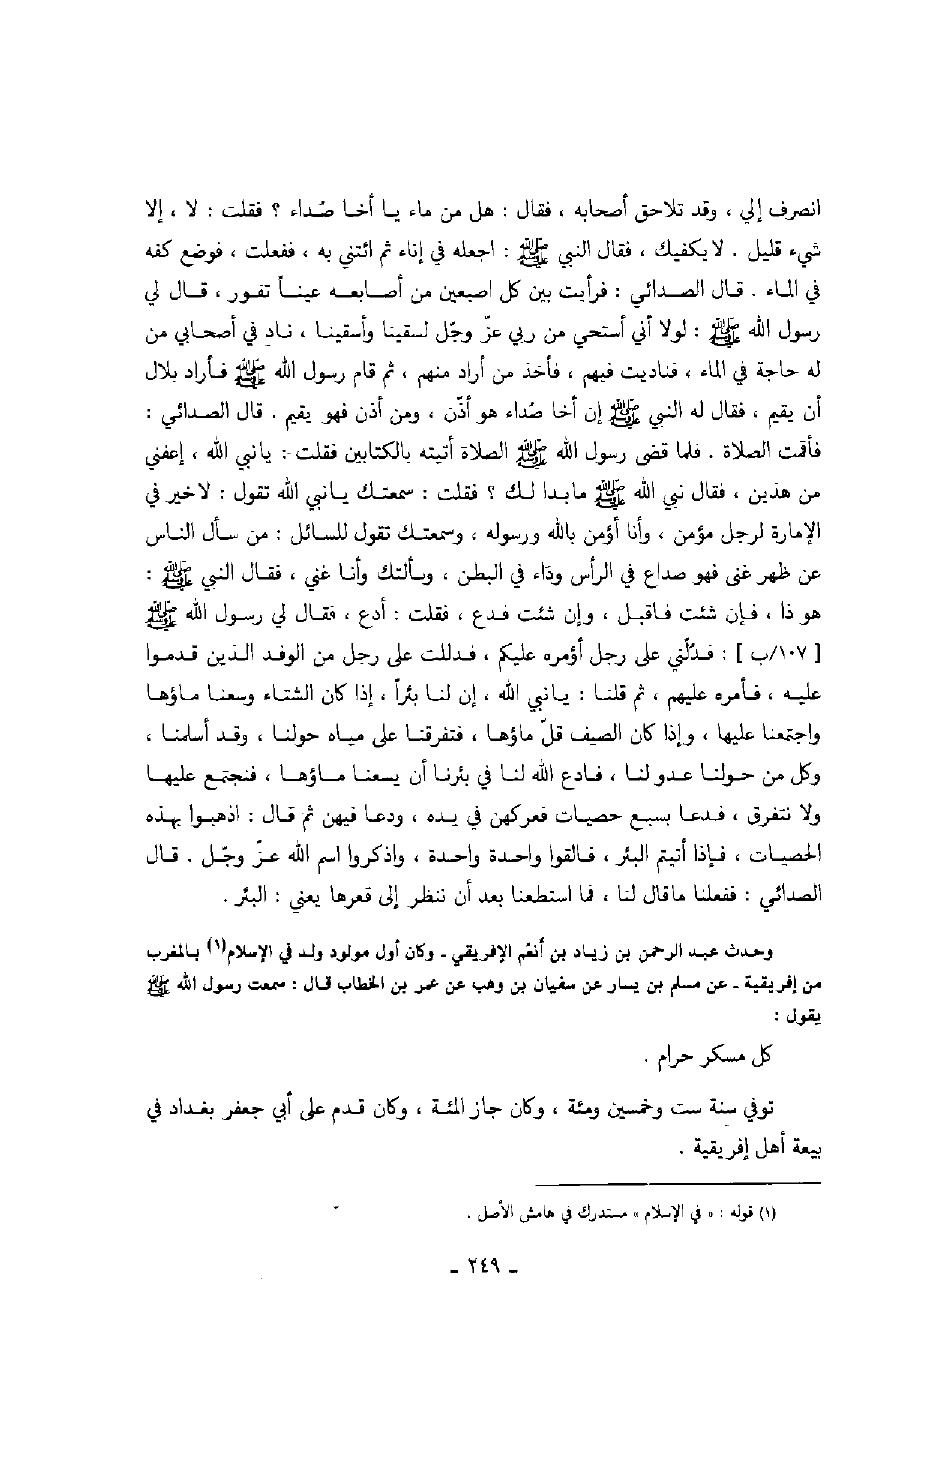 انصرف إلي ، وقد تلاحق أصحابه ، فقال : هل من ماء يا أخا صُداء ؟ فقلت : لا ، إلا
شيء قليل . لا يكفيك ، فقال النبي ﷺ : اجعله في إناء ثم ائتني به ، ففعلت ، فوضع كفه
في الماء . قال الصدائي : فرأيت بين كل اصبعين من أصابعه عيناً تفور ، قال لي
رسول الله ﷺ : لولا أني أستحي من ربي عزّ وجّل لسقينا وأسقينا ، نادِ في أصحابي من
له حاجة في الماء ، فناديت فيهم ، فأخذ من أراد منهم ، ثم قام رسول الله ﷺ فأراد بلال
أن يقيم ، فقال له النبي ﷺ إن أخا صُداء هو أذّن ، ومن أذن فهو يقيم . قال الصدائي :
فأقمت الصلاة . فلما قضى رسول الله ﷺ الصلاة أتيته بالكتابين فقلت : يا نبي الله ، إعفني
من هذين ، فقال نبي الله ﷺ ما بدا لك ؟ فقلت : سمعتك يا نبي الله تقول : لا خير في
الإمارة لرجل مؤمن ، وأنا أؤمن بالله ورسوله ، وسمعتك تقول للسائل : من سأل الناس
عن ظهر غنى فهو صداع في الرأس وداء في البطن ، وسألتك وأنا غني ، فقال النبي ﷺ :
هو ذا ، فإن شئت فاقبل ، وإن شئت فدع ، فقلت : أدع ، فقال لي رسول الله ﷺ
[ ١٠٧/ب ] : فدلّني على رجل أؤمره عليكم ، فدللت على رجل من الوفد الذين قدموا
عليه ، فأمره عليهم ، ثم قلنا : يا نبي الله ، إن لنا بئراً ، إذا كان الشتاء وسعنا ماؤها
واجتمعنا عليها ، وإذا كان الصيف قلّ ماؤها ، فتفرقنا على مياه حولنا ، وقد أسلمنا ،
وكل من حولنا عدو لنا ، فادع الله لنا في بئرنا أن يسعنا ماؤها ، فنجتمع عليها
ولا نتفرق ، فدعا بسبع حصيات فعركهن في يده ، ودعا فيهن ثم قال : اذهبوا بهذه
الحصيات ، فإذا أتيتم البئر ، فالقوا واحدة واحدة ، واذكروا اسم الله عزّ وجّل . قال
الصدائي : ففعلنا ما قال لنا ، فما استطعنا بعد أن ننظر إلى قعرها يعني : البئر .
وحدث عبد الرحمن بن زياد بن أنعُم الإفريقي ـ وكان أول مولود ولد في الإسلام(١) بالمغرب
من إفريقية ـ عن مسلم بن يسار عن سفيان بن وهب عن عمر بن الخطاب قال : سمعت رسول الله ﷺ
يقول :
كل مسكر حرام .
توفي سنة ست وخمسين ومئة ، وكان جاز المئة ، وكان قدم على أبي جعفر بغداد في
بيعة أهل إفريقية .
(١) قوله : « في الإسلام » مستدرك في هامش الأصل .
ـ ٢٤٩ ـ